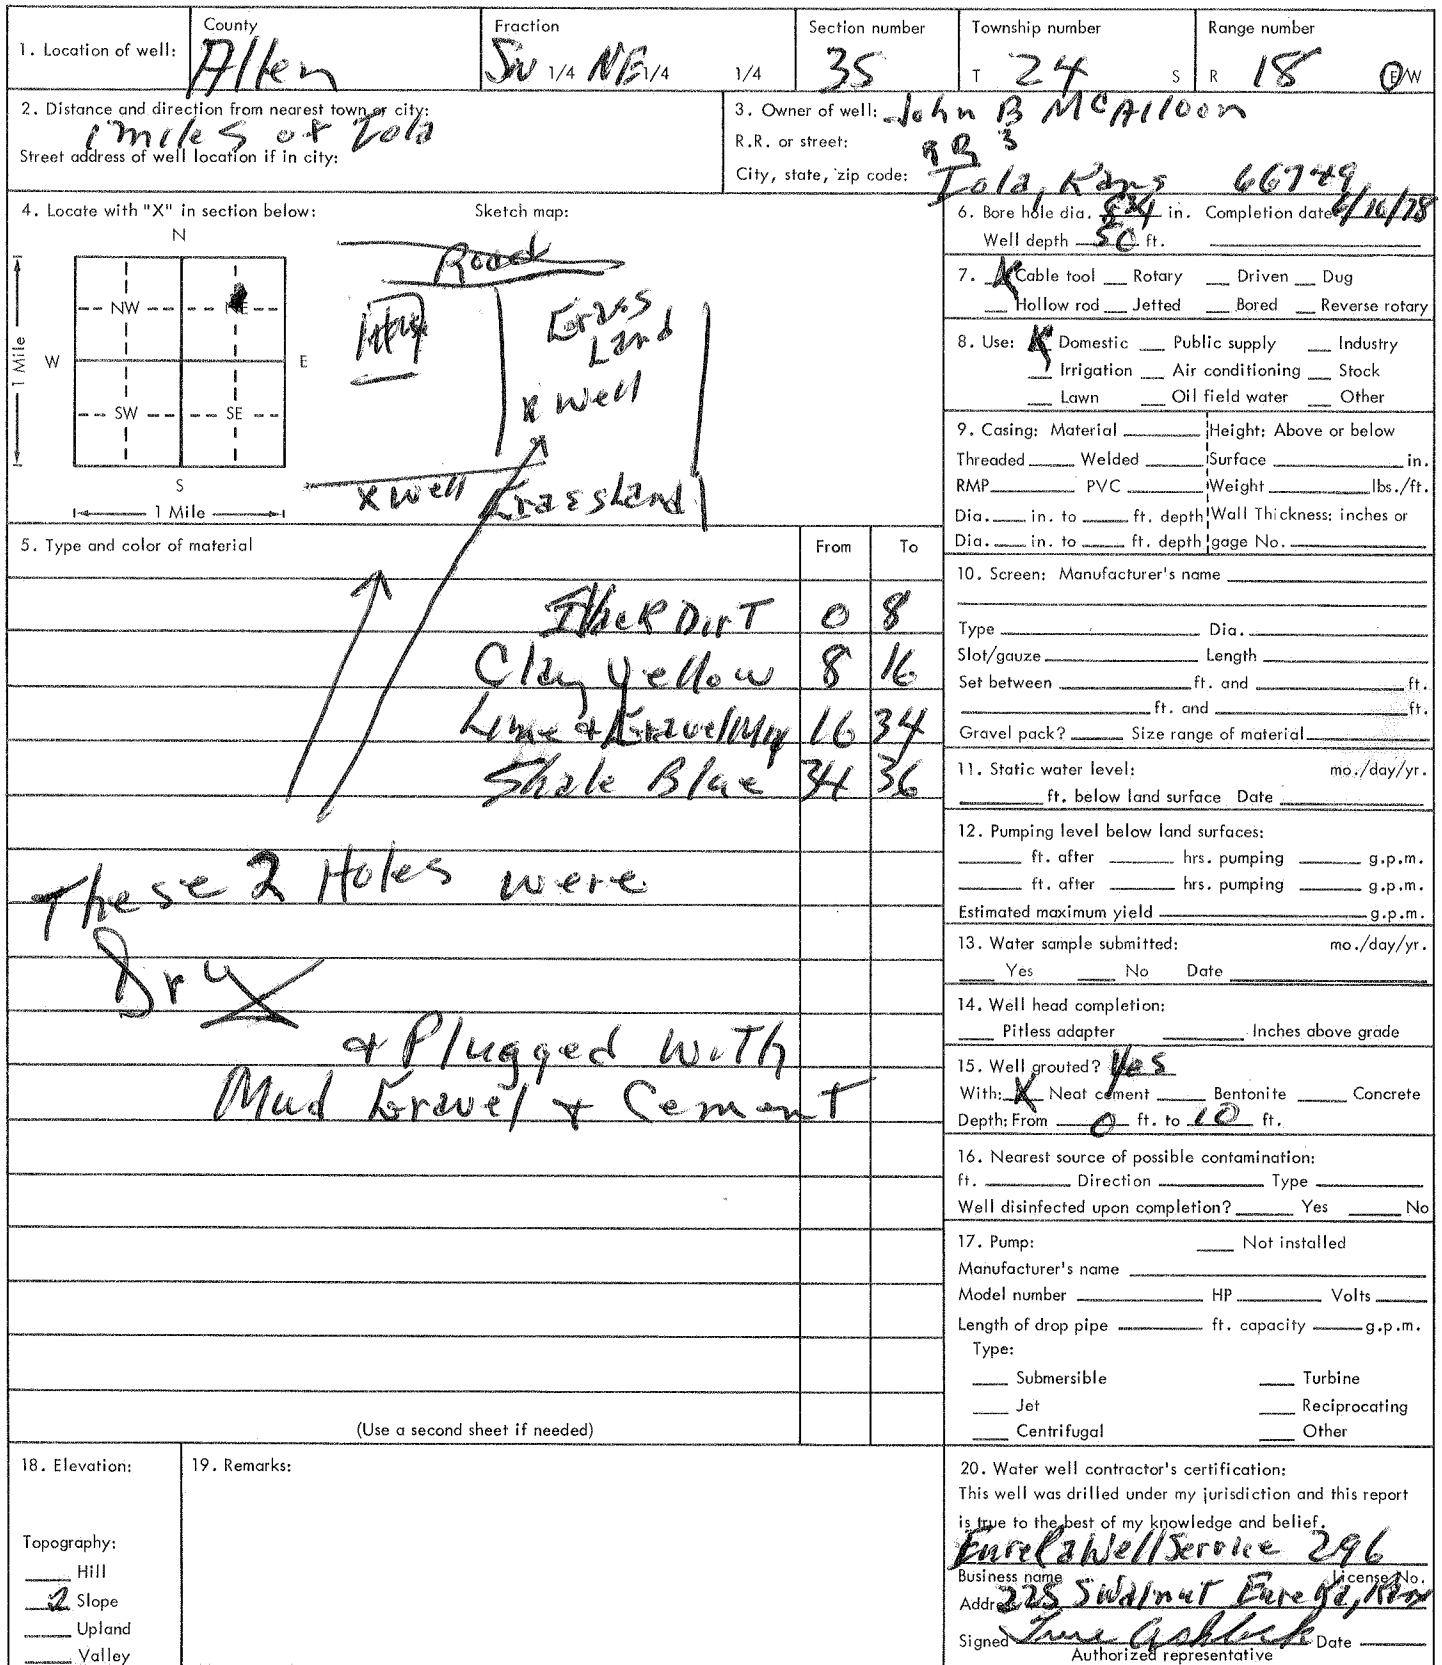 1. Location of well: County Allen Fraction SW 1/4 NE 1/4 1/4 Section number 35 Township number T 24 S Range number R 18 E/W
2. Distance and direction from nearest town or city: 1 miles of Iola
Street address of well location if in city:
3. Owner of well: John B McAlloon
R.R. or street: RR 3
City, state, zip code: Iola, Kans 66749
4. Locate with "X" in section below:
N
NW NE
W E
SW SE
S
1 Mile
1 Mile
Sketch map:
Road
Grass
Land
x Well
x Well Grassland
5. Type and color of material From To
Dirt 0 8
Clay yellow 8 16
Lime & Gravel Mix 16 34
Shale Blue 34 36
These 2 Holes were
Dry
& Plugged With
Mud Gravel & Cement
(Use a second sheet if needed)
6. Bore hole dia. in. Completion date 6/16/78
Well depth 50 ft.
7. X Cable tool Rotary Driven Dug
Hollow rod Jetted Bored Reverse rotary
8. Use: X Domestic Public supply Industry
Irrigation Air conditioning Stock
Lawn Oil field water Other
9. Casing: Material Height: Above or below
Threaded Welded Surface in.
RMP PVC Weight lbs./ft.
Dia. in. to ft. depth Wall Thickness: inches or
Dia. in. to ft. depth gage No.
10. Screen: Manufacturer's name
Type Dia.
Slot/gauze Length
Set between ft. and ft.
ft. and ft.
Gravel pack? Size range of material
11. Static water level: mo./day/yr.
ft. below land surface Date
12. Pumping level below land surfaces:
ft. after hrs. pumping g.p.m.
ft. after hrs. pumping g.p.m.
Estimated maximum yield g.p.m.
13. Water sample submitted: mo./day/yr.
Yes No Date
14. Well head completion:
Pitless adapter Inches above grade
15. Well grouted? Yes
With: X Neat cement Bentonite Concrete
Depth: From 0 ft. to 10 ft.
16. Nearest source of possible contamination:
ft. Direction Type
Well disinfected upon completion? Yes No
17. Pump: Not installed
Manufacturer's name
Model number HP Volts
Length of drop pipe ft. capacity g.p.m.
Type:
Submersible Turbine
Jet Reciprocating
Centrifugal Other
18. Elevation:
Topography:
Hill
Slope
Upland
Valley
19. Remarks:
20. Water well contractor's certification:
This well was drilled under my jurisdiction and this report
is true to the best of my knowledge and belief.
Eureka Well Service 296
Business name License No.
Address 225 S Walnut Eureka, Kan
Signed Ashlock Date
Authorized representative